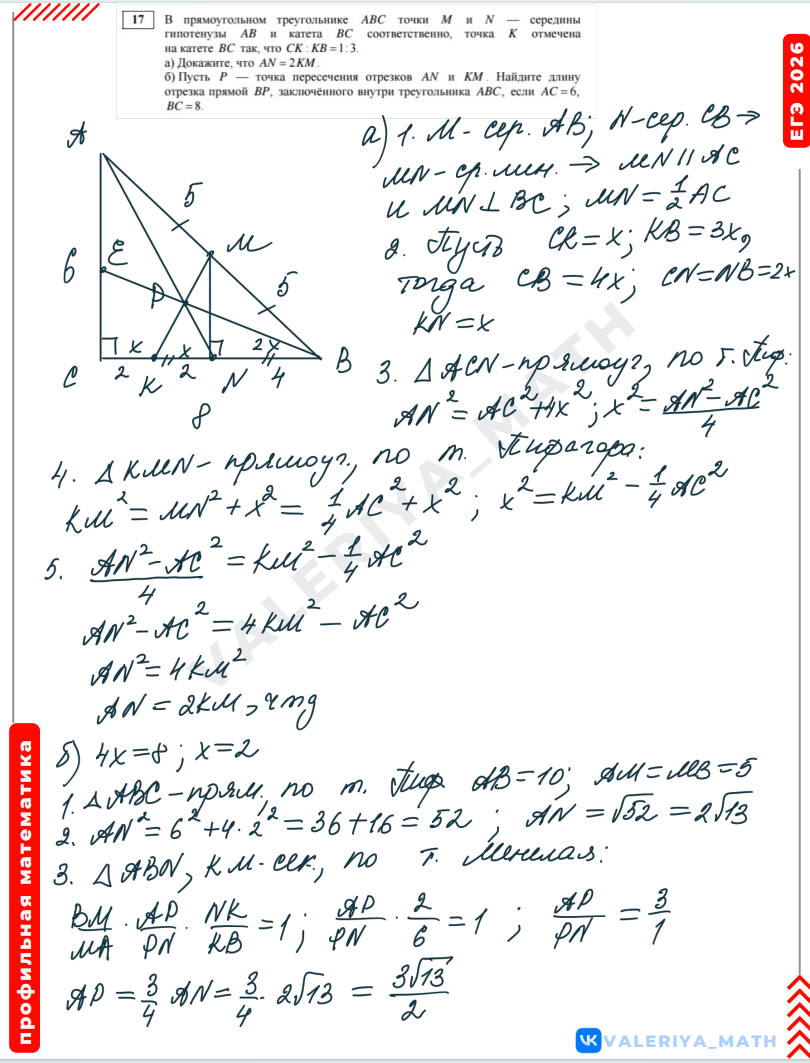 17 В прямоугольном треугольнике ABC точки M и N — середины
гипотенузы AB и катета BC соответственно, точка K отмечена
на катете BC так, что CK : KB = 1 : 3.
а) Докажите, что AN = 2KM.
б) Пусть P — точка пересечения отрезков AN и KM. Найдите длину
отрезка прямой BP, заключённого внутри треугольника ABC, если AC = 6,
BC = 8.
ЕГЭ 2026
A
5
M
6
E
P
5
x
x
2x
C
2
K
2
N
4
B
8
а) 1. M - сер. AB; N - сер. CB →
MN - ср. лин. → MN || AC
и MN ⊥ BC; MN = 1/2 AC
2. Пусть CK = x; KB = 3x,
тогда CB = 4x; CN = NB = 2x
KN = x
3. △ACN - прямоуг, по т. Пиф:
AN² = AC² + 4x²; x² = (AN² - AC²)/4
4. △KMN - прямоуг., по т. Пифагора:
KM² = MN² + x² = 1/4 AC² + x²; x² = KM² - 1/4 AC²
5. (AN² - AC²)/4 = KM² - 1/4 AC²
AN² - AC² = 4KM² - AC²
AN² = 4KM²
AN = 2KM, чтд
б) 4x = 8; x = 2
1. △ABC - прям., по т. Пиф AB = 10; AM = MB = 5
2. AN² = 6² + 4·2² = 36 + 16 = 52; AN = √52 = 2√13
3. △ABN, KM - сек., по т. Менелая:
BM/MA · AP/PN · NK/KB = 1; AP/PN · 2/6 = 1; AP/PN = 3/1
AP = 3/4 AN = 3/4 · 2√13 = 3√13/2
профильная математика
VALERIYA_MATH
VALERIYA_MATH